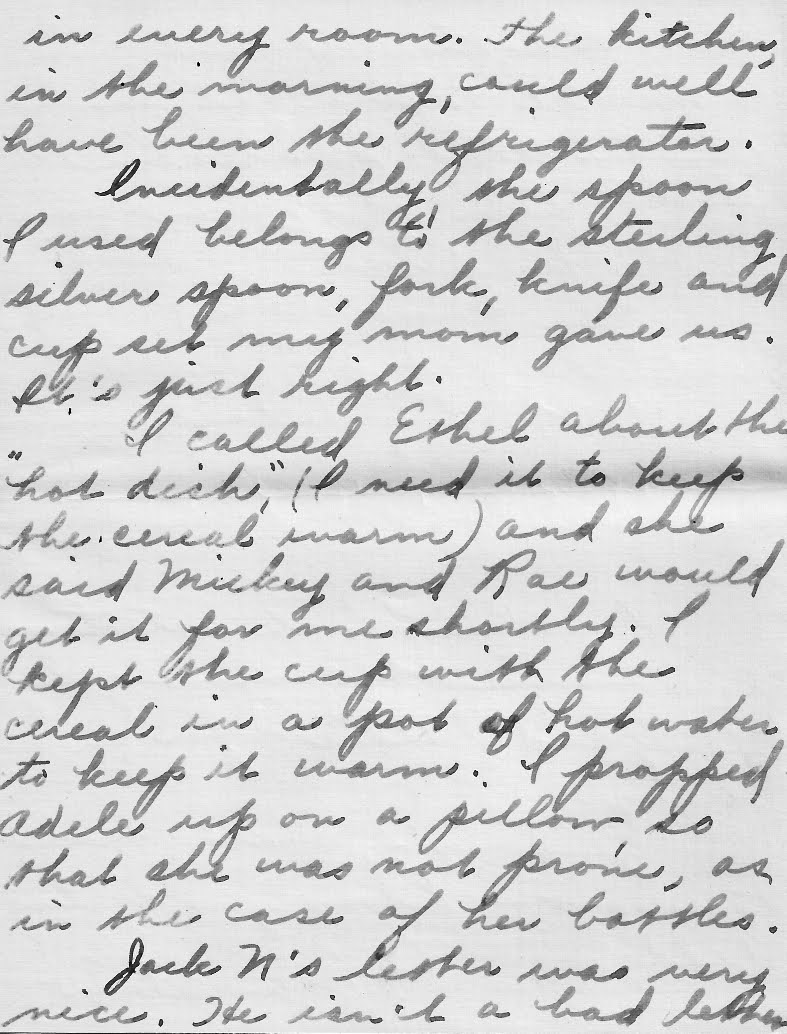 in every room. The kitchen,
in the morning, could well
have been the refrigerator.
Incidentally the spoon
I used belongs to the sterling
silver spoon, fork, knife and
cup set my mom gave us.
It's just right.
I called Ethel about the
"hot dish," (I need it to keep
the cereal warm) and she
said Mickey and Rae would
get it for me shortly. I
kept the cup with the
cereal in a pot of hot water
to keep it warm. I propped
Adele up on a pillow so
that she was not prone, as
in the case of her bottles.
Jack N's letter was very
nice. He isn't a bad letter